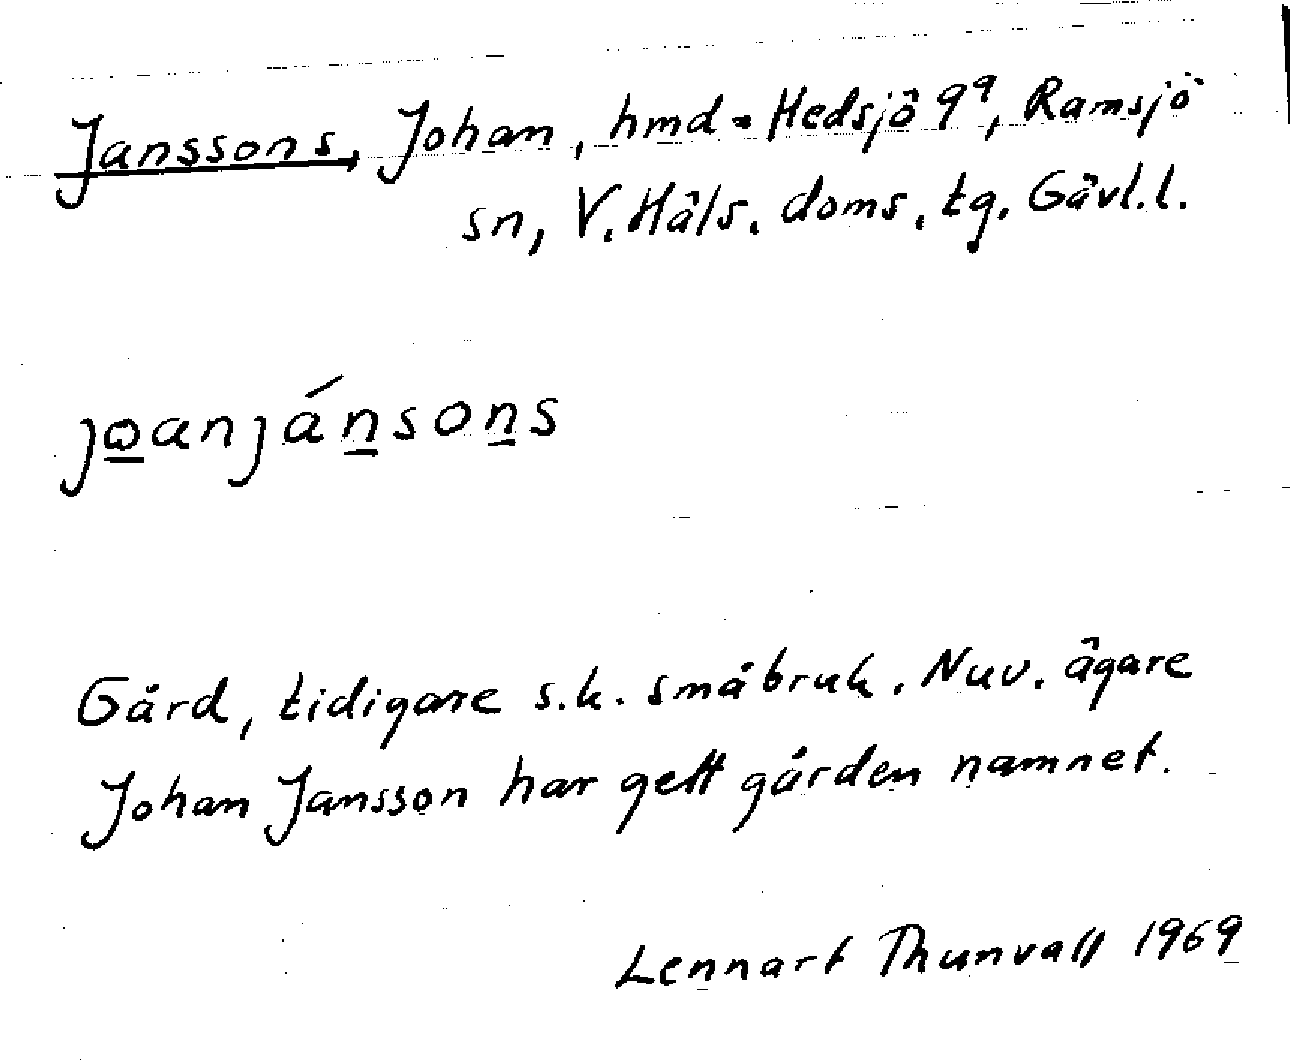 Janssons, Johan, hmd - Hedsjö 9⁹, Ramsjö
sn, V. Häls. doms. tg. Gävl.l.
jo̲anján̲son̲s
Gård, tidigare s.k. småbruk. Nuv. ägare
Johan Jansson har gett gården namnet.
Lennart Thunvall 1969